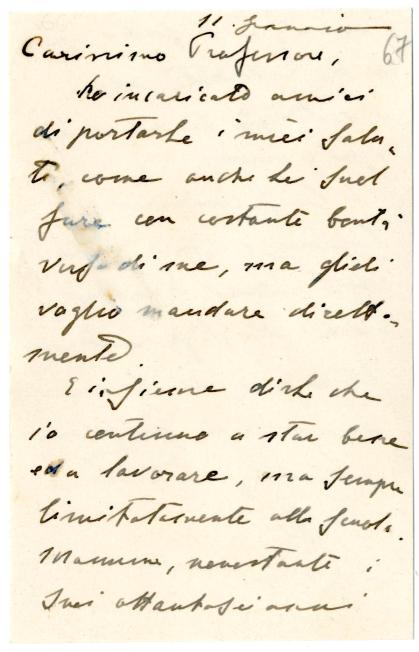 11. Gennaio
67
Carissimo Professore,
ho incaricato amici
di portarle i miei salu-
ti, come anche Lei suol
fare con costante bontà
verso di me, ma glieli
voglio mandare diretta-
mente
E insieme dirle che
io continuo a star bene
ed a lavorare, ma sempre
limitatamente alla scuola.
Mamma, nonostante i
suoi ottantasei anni